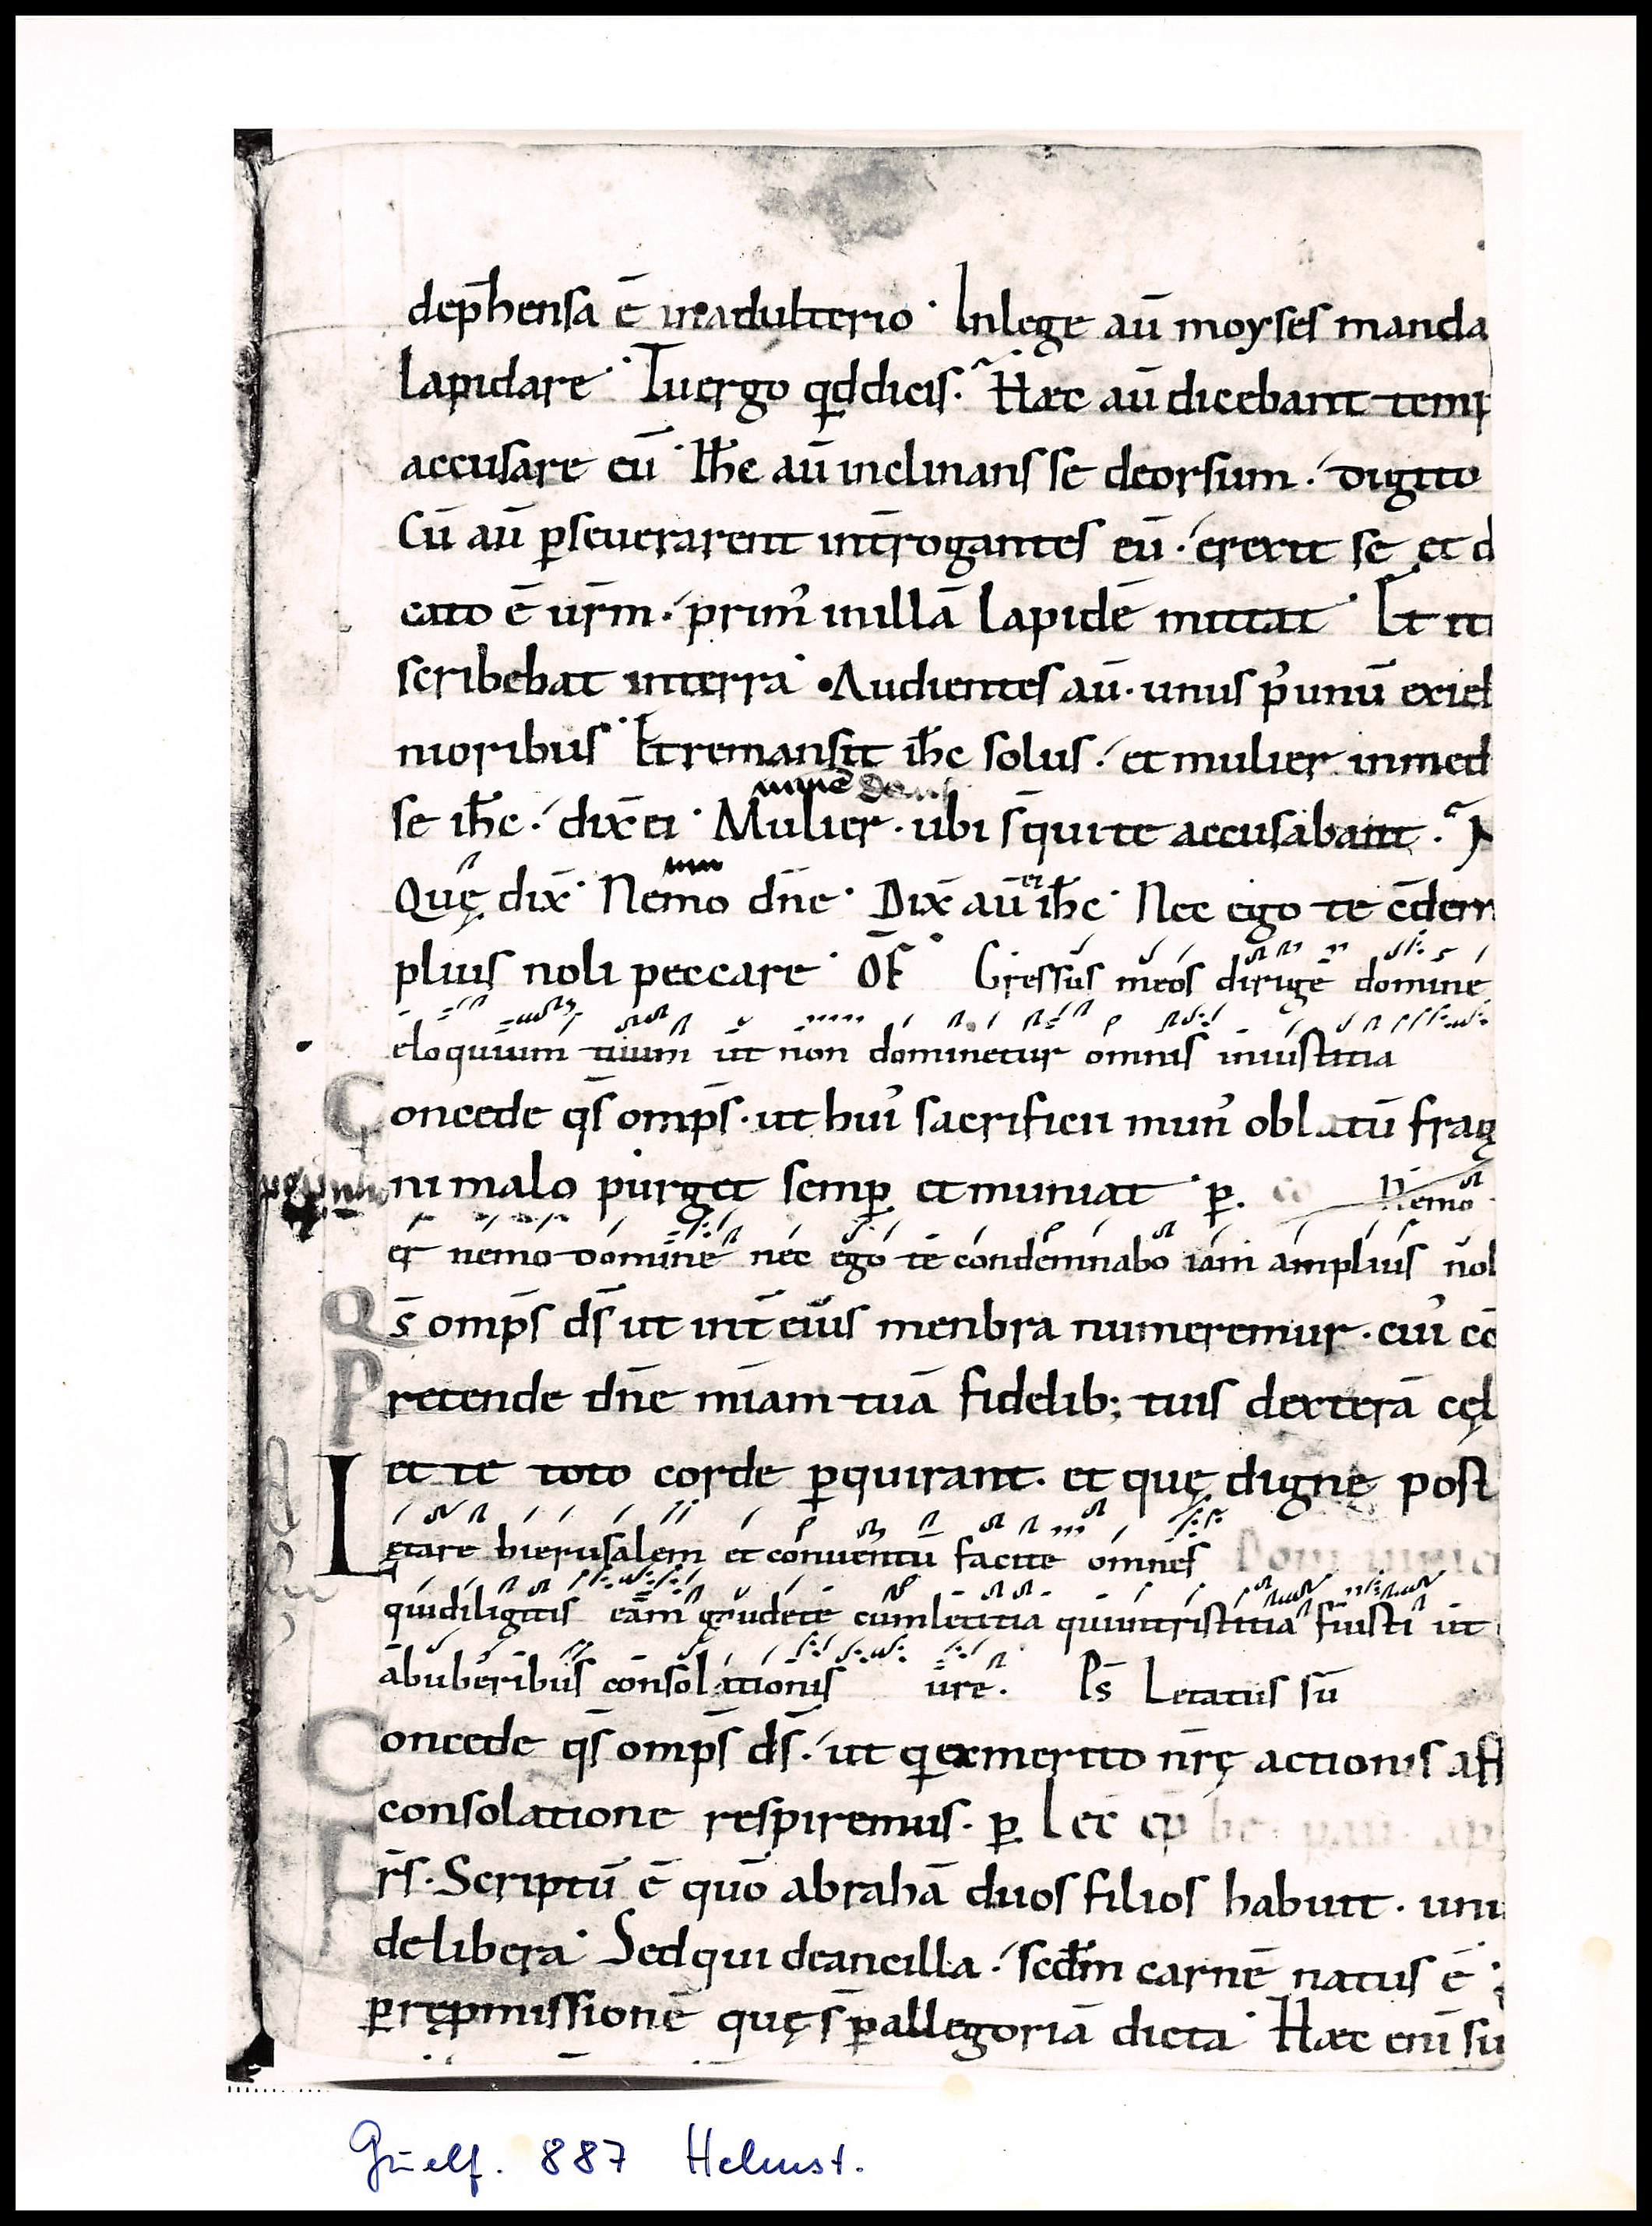 dep̄hensa ē inadulterio · Inlege aū moyses manda
lapidare · Tuergo qd dicis · Haec aū dicebant temp
accusare eū · Ih̄c aū inclinans se deorsum · digito
Cū aū pseuerarent int̄rogantes eū · erexit se et d
cato ē ur̄m · prim' inillā lapidē mittat · Et it
scribebat interra · Audientes aū · unus p' unū exieb
nioribus · Etremansit ih̄c solus · et mulier inmed
se ih̄c · dix̄ ei · Mulier · ubi s̄ quite accusabant ·
Quę dix̄ · Nemo dn̄e · Dix̄ aū ei ih̄c · Nec ego te c̄dem
plius noli peccare · Of̄ Gressus meos dirige domine
eloquium tuum ut non dominetur omnis iniustitia
Concede qs̄ omps̄ · ut hui' sacrificii mun' oblatū frag
ni malo purget semp et muniat · p. co Nemo
er nemo domine nec ego te condemnabo iam amplius nol
Qs̄ omps̄ ds̄ ut int̄ eius menbra numeremur · cui' cō
Pretende dn̄e mīam tuā fidelib; tuis dexterā cęl
et te toto corde pquirant · et quę digne post
Lętare hierusalem et conuentū facite omnes
quidiligitis eam gaudete cumletitia quiintristitia fuisti ut
abuberibus consolationis ure · Ps̄ Letatus sū
Concede qs̄ omps̄ ds̄ · ut q exmerito nr̄ę actionis aff
consolatione respiremus · p. Lec̄ ep̄
Fr̄s · Scriptū ē quō abrahā duos filios habuit · unu
delibera · Sedqui deancilla · scd̄m carnē natus ē ·
p rępmissionē quę s̄ pallegoriā dicta · Haec enī su
Guelf. 887 Helmst.